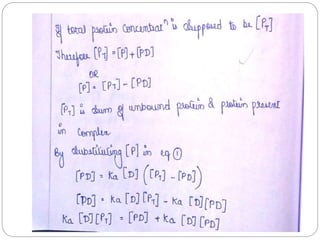 If total protein Concentratⁿ is supposed to be [PT]
Therefore [PT] = [P] + [PD]
OR
[P] = [PT] - [PD]
[PT] is sum of unbound protein & protein present
in complex
By substituting [P] in eq ①
[PD] = Ka [D] ([PT] - [PD])
[PD] = Ka [D] [PT] - Ka [D] [PD]
Ka [D] [PT] = [PD] + Ka [D] [PD]